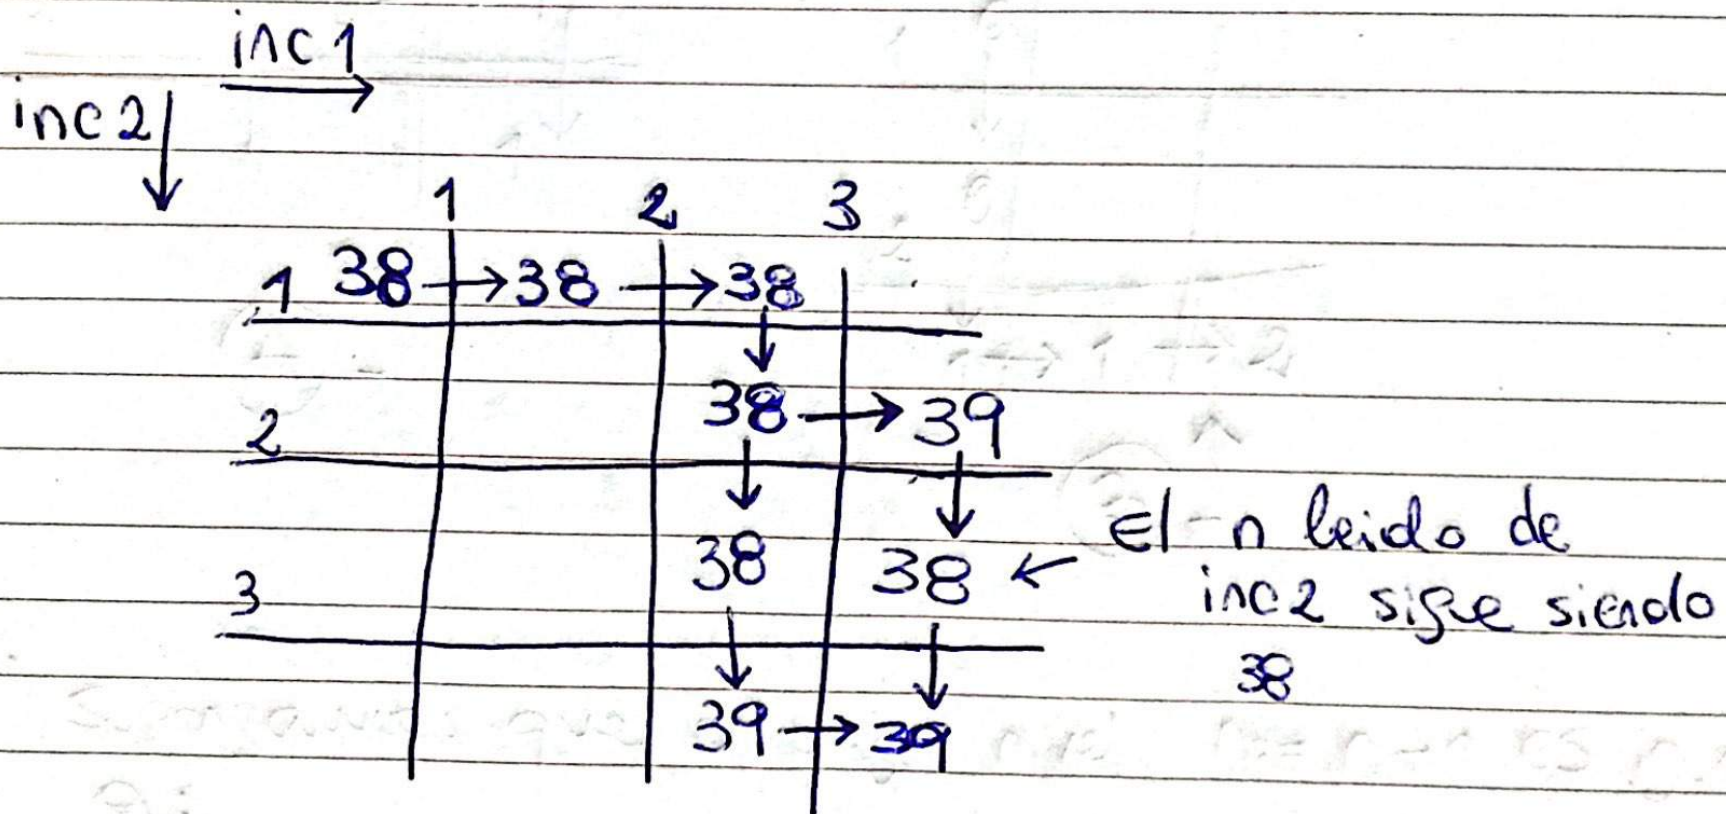 inc 1
inc 2
1 2 3
1 38 → 38 → 38
38 → 39
2
38 38 ← El n leido de
inc 2 sigue siendo
3
38
39 → 39